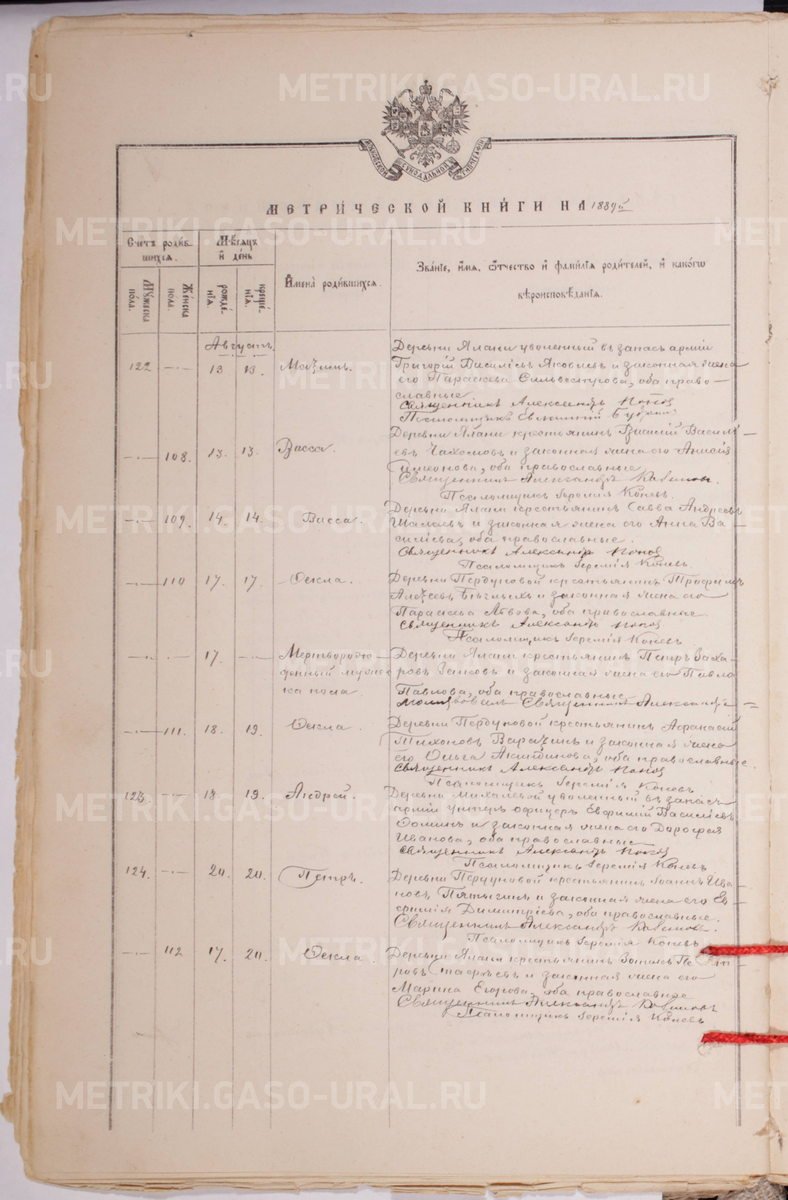 МЕТРИЧЕСКОЙ КНИГИ НА 1889й
Счетъ родив-
шихся.
Мѣсяцъ
и день
Мужеска
пола.
Женска
пола.
рожде-
нія.
креще-
нія.
Имена родившихся.
Званіе, имя, отчество и фамилія родителей, и какого
вѣроисповѣданія.
Августъ
Деревни Алани уволенный въ запасъ арміи
122 13 13. Максимъ. Григорій Васильевъ Яковлевъ и законная жена
его Параскева Сильвестрова, оба право-
славные
Священникъ Александръ Поповъ
Псаломщикъ Евлампій
Деревни Алани крестьянинъ Василій Василь-
108 13. 13. Васса. евъ и законная жена его Анисія
Симеонова, оба православные.
Священникъ Александръ
Псаломщикъ Іеремія Коневъ.
109 14. 14. Васса. Деревни Алани крестьянинъ Савва Андреевъ
и законная жена его Анна Ва-
сильева, оба православные.
Священникъ Александръ Поповъ
Псаломщикъ Іеремія Коневъ.
110 17. 17. Ѳекла. Деревни крестьянинъ Трофимъ
Алексѣевъ и законная жена его
Параскева Львова, оба православные
Священникъ Александръ Поповъ
Псаломщикъ Іеремія Коневъ
17. Мертворож- Деревни Алани крестьянинъ Петръ Заха-
денный мужес- ровъ и законная жена его Павла
ка пола Павлова, оба православные
Священникъ Александръ
111. 18. 19. Ѳекла Деревни крестьянинъ Аѳанасій
Тихоновъ и законная жена
его Ольга, оба православные.
Священникъ Александръ Поповъ
Псаломщикъ Іеремія Коневъ
123. 18. 19. Андрей. Деревни Михалевой уволенный въ запасъ
арміи унтеръ офицеръ Евфимій Васильевъ
Ѳоминъ и законная жена его Дороѳея
Иванова, оба православные
Священникъ Александръ Поповъ
Псаломщикъ Іеремія Коневъ
124. 20. 20. Петръ. Деревни крестьянинъ Іоаннъ Ива-
новъ Пятыгинъ и законная жена его Ев-
фимія Димитріева, оба православные.
Священникъ Александръ
Псаломщикъ Іеремія Коневъ
112 17. 20. Ѳекла. Деревни Алани крестьянинъ Пет-
ровъ и законная жена его
Марина Егорова, оба православные
Священникъ Александръ
Псаломщикъ Іеремія Коневъ
METRIKI.GASO-URAL.RU